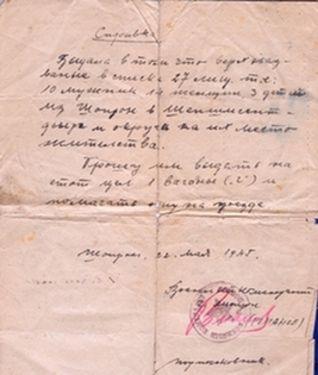 Справка
Выдана в том что верхуказ-
ванные в списке 27 лиц. т.е.
10 мужчин 14 женщин 3 детей
из Шопрон в
и округе на их место
жительства.
Прошу им выдать на
этот цел 1 вагоны (.) и
помагать ему на поезде
Шопрон. 22 мая 1945.
Военный Комендант
Шопрон
подполковник.